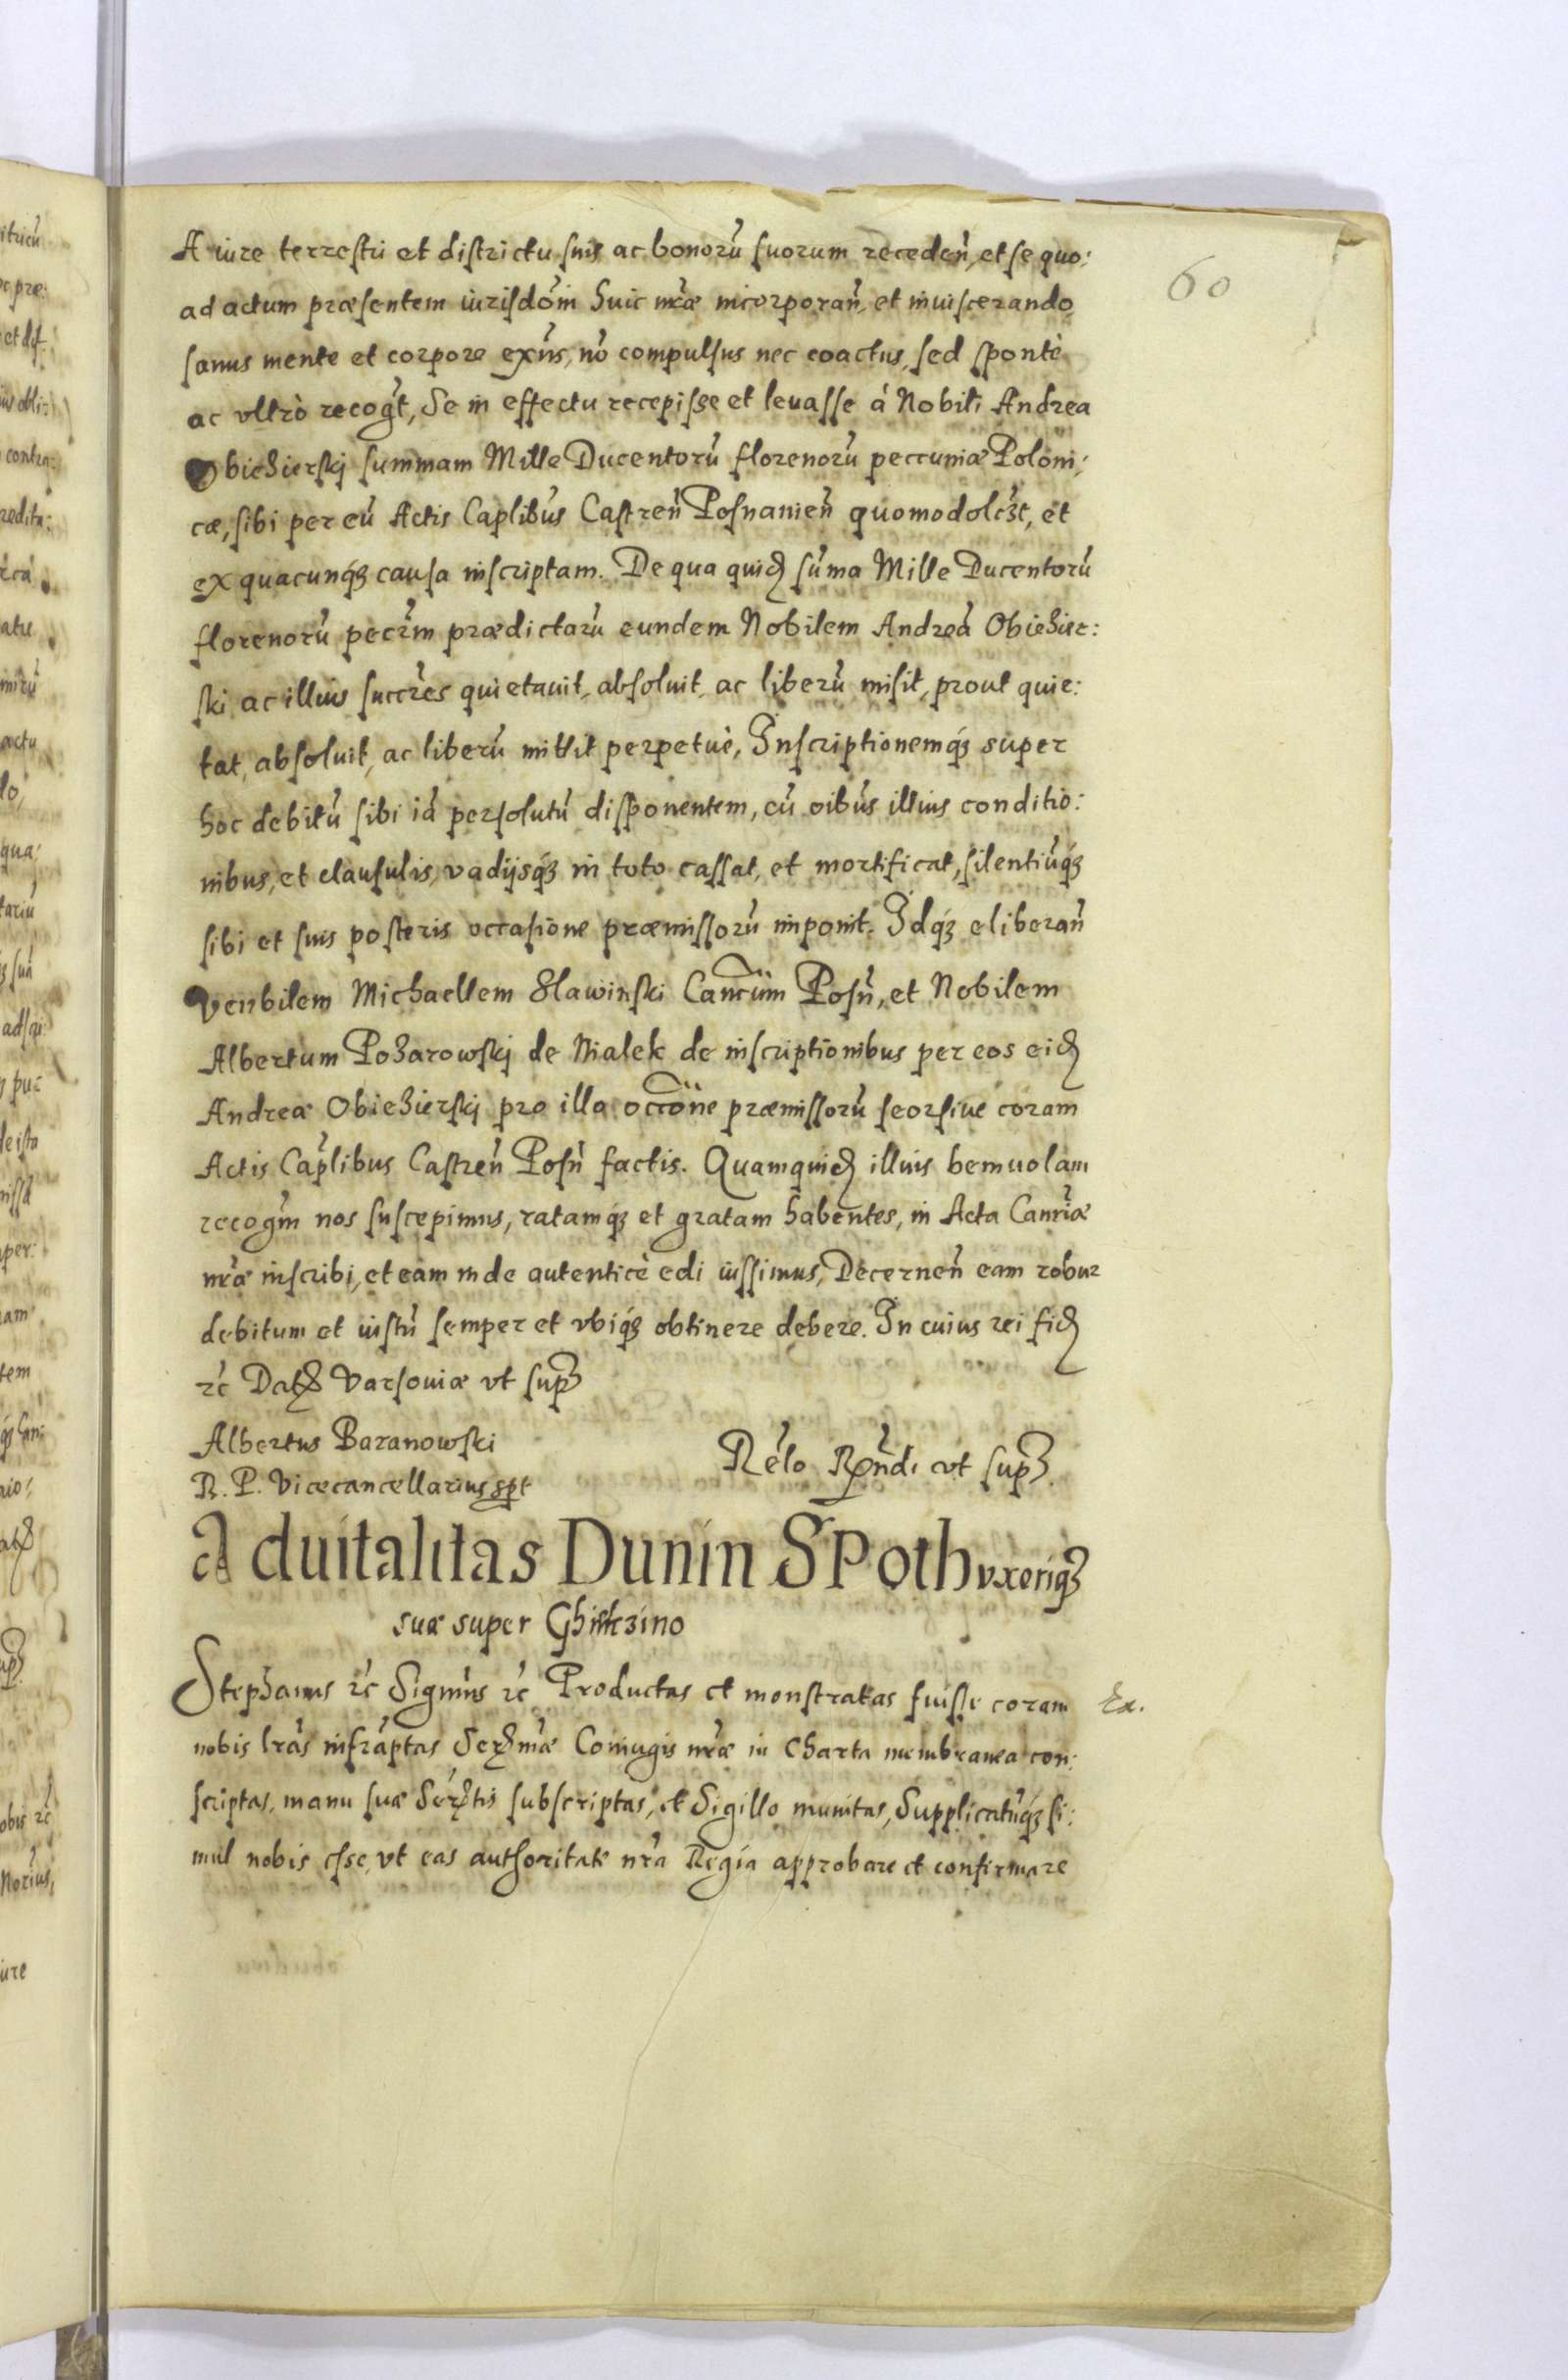 60
A iure terrestri et districtu suis ac bonorū suorum recedeñ, et se quo:
ad actum præsentem iurisdom̃ huic nr̃æ incorporañ, et inuiscerando,
sanus mente et corpore exñs, nō compulsus nec coactus, sed spontè
ac vltrò recog̃t, Se in effectu recepisse et leuasse á Nobili Andrea
Obiezierskj summam Mille Ducentorū florenorū peccuniæ Poloni:
cæ, sibi per eū Actis Caplibus̃ Castreñ Posnanieñ quomodolꝫt, et
ex quacunqꝫ causa inscriptam. De qua quidꝫ sūma Mille Ducentorū
florenorū pecr̃m prædictarū eundem Nobilem Andreā Obiezier:
ski ac illius succr̃es quietauit, absoluit, ac liberū misit, prout quie:
tat, absoluit, ac liberū mittit perpetuè, Inscriptionemqꝫ super
hoc debitū sibi iā persolutū disponentem, cū oibus̃ illius conditio:
nibus, et clausulis, vadijsqꝫ in toto cassat, et mortificat, silentiūqꝫ
sibi et suis posteris occasione præmissorū imponit. Idqꝫ eliberañ
Venbilem Michaellem Slawinski Canc̃um Posñ, et Nobilem
Albertum Pozarowskj de Nialek de inscriptionibus per eos eidꝫ
Andreæ Obiezierskj pro illa occõne præmissorū seorsiue coram
Actis Cap̃libus Castreñ Posñ factis. Quamquidꝫ illius beniuolam
recog̃m nos suscepimus, ratamqꝫ et gratam habentes, in Acta Canr̃iæ
nr̃æ inscribi, et eam inde autenticè edi iussimus, Decerneñ eam robur
debitum et iustū semper et vbiqꝫ obtinere debere. In cuius rei fidꝫ
ꝛc̃ Datꝫ Varsouiæ vt supꝫ
Albertus Baranowski
R. P. Vicecancellarius spt
Rẽlo Rp̃ndi vt supꝫ.
Aduitalitas Dunin SPoth vxoriqꝫ
suæ super Ghinczino
Stephanus ꝛc̃ Signim̃s ꝛc̃ Productas et monstratas fuisse coram
Ex.
nobis lrãs infrãptas Serꝫm̃æ Coniugis nr̃æ in Charta membranea con:
scriptas, manu suæ Serꝫtis subscriptas, et Sigillo munitas, Supplicatūqꝫ si:
mul nobis esse, vt eas authoritate nr̃a Regia approbare et confirmare